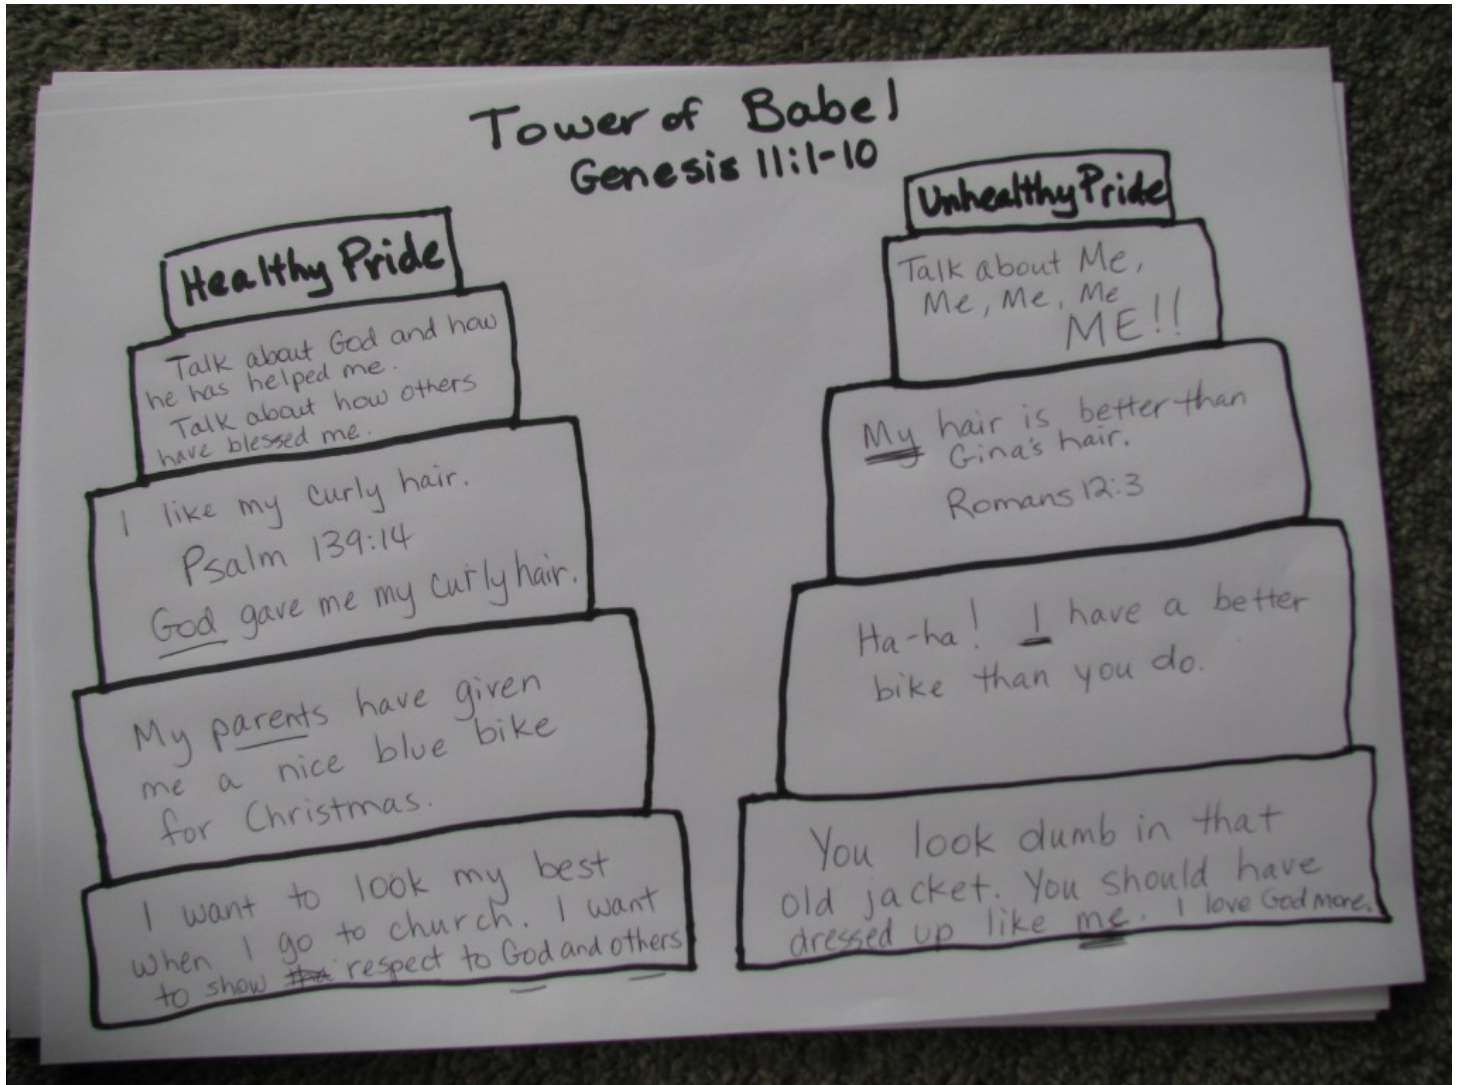 Tower of Babel
Genesis 11:1-10
Healthy Pride
Talk about God and how
he has helped me.
Talk about how others
have blessed me.
I like my curly hair.
Psalm 139:14
God gave me my curly hair.
My parents have given
me a nice blue bike
for Christmas.
I want to look my best
when I go to church. I want
to show respect to God and others
Unhealthy Pride
Talk about Me,
Me, Me, Me
ME!!
My hair is better than
Gina's hair.
Romans 12:3
Ha-ha! I have a better
bike than you do.
You look dumb in that
old jacket. You should have
dressed up like me. I love God more.